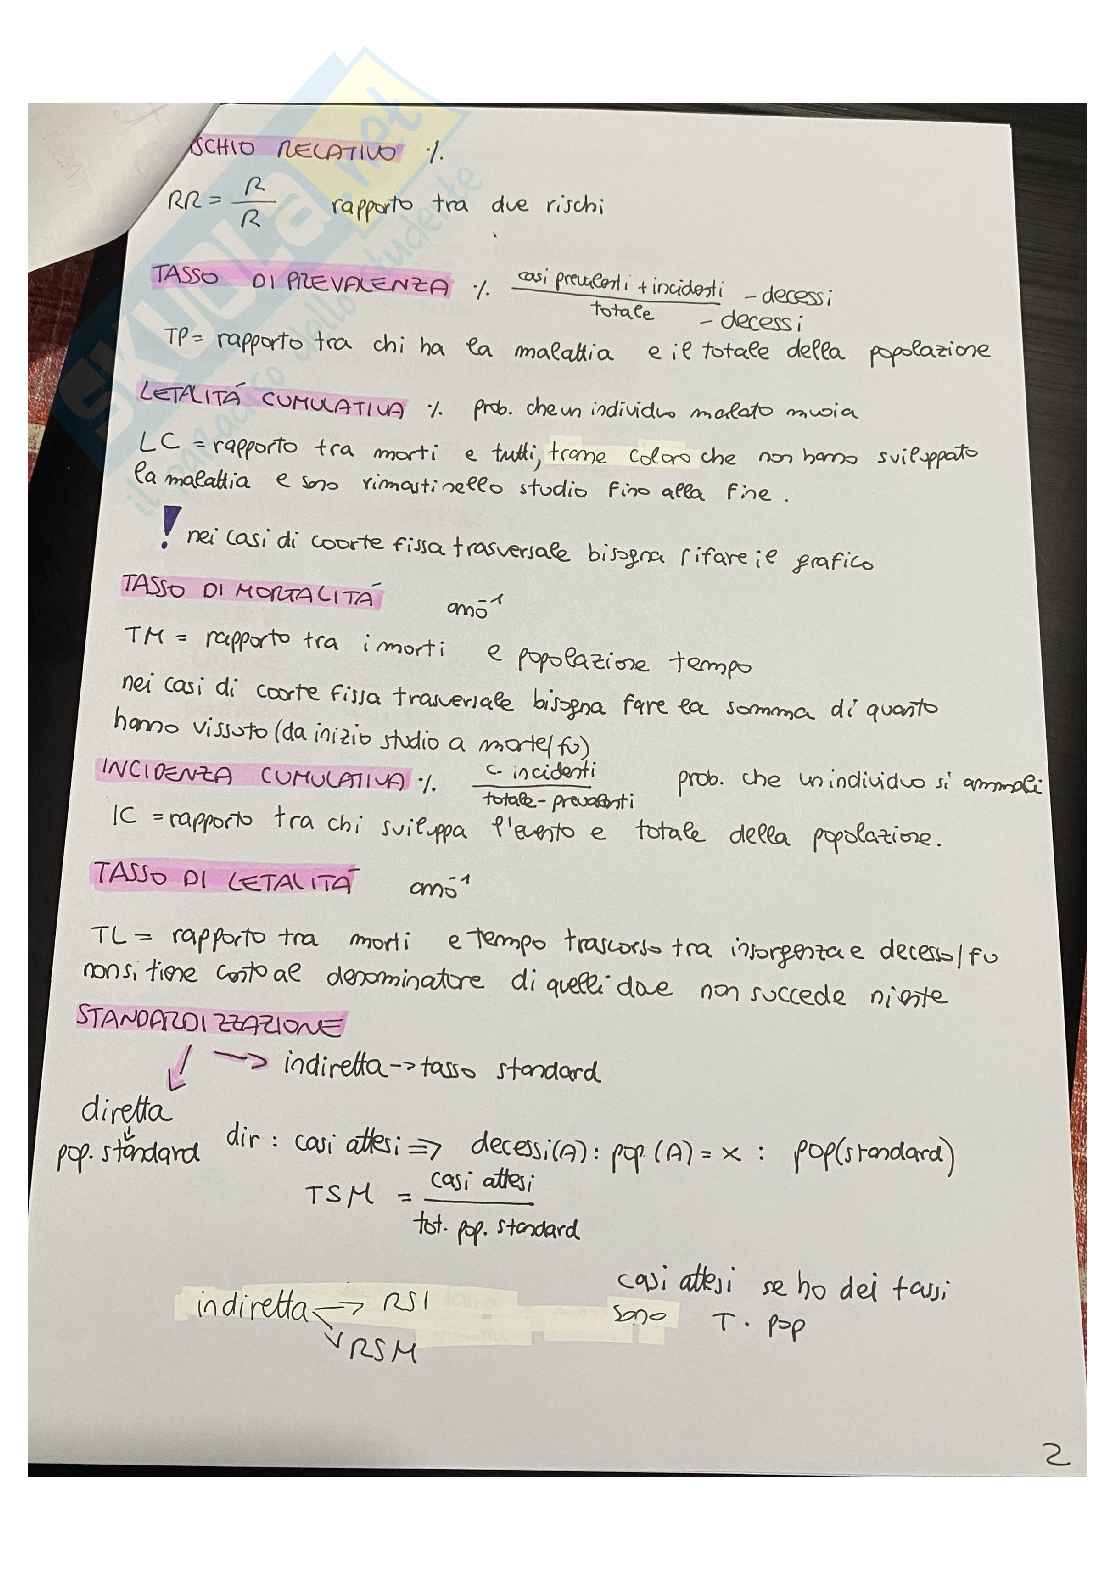 SCHIO RELATIVO %
RR = R / R rapporto tra due rischi
TASSO DI PREVALENZA % casi prevalenti + incidenti - decessi
totale - decessi
TP = rapporto tra chi ha la malattia e il totale della popolazione
LETALITÁ CUMULATIVA % prob. che un individuo malato muoia
LC = rapporto tra morti e tutti, trame coloro che non hanno sviluppato
la malattia e sono rimasti nello studio fino alla fine.
! nei casi di coorte fissa trasversale bisogna rifare il grafico
TASSO DI MORTALITÁ anno⁻¹
TM = rapporto tra i morti e popolazione tempo
nei casi di coorte fissa trasversale bisogna fare la somma di quanto
hanno vissuto (da inizio studio a morte/fu)
INCIDENZA CUMULATIVA % c. incidenti / totale - prevalenti prob. che un individuo si ammali
IC = rapporto tra chi sviluppa l'evento e totale della popolazione.
TASSO DI LETALITÁ anno⁻¹
TL = rapporto tra morti e tempo trascorso tra insorgenza e decesso/fu
non si tiene conto al denominatore di quelli dove non succede niente
STANDARDIZZAZIONE
→ indiretta → tasso standard
diretta
pop. standard
dir : casi attesi ⇒ decessi(A) : pop.(A) = x : pop(standard)
TSM = casi attesi / tot. pop. standard
casi attesi se ho dei tassi
sono T · pop
indiretta → RSI
RSM
2
SKUOLA.net
il paradiso dello studente